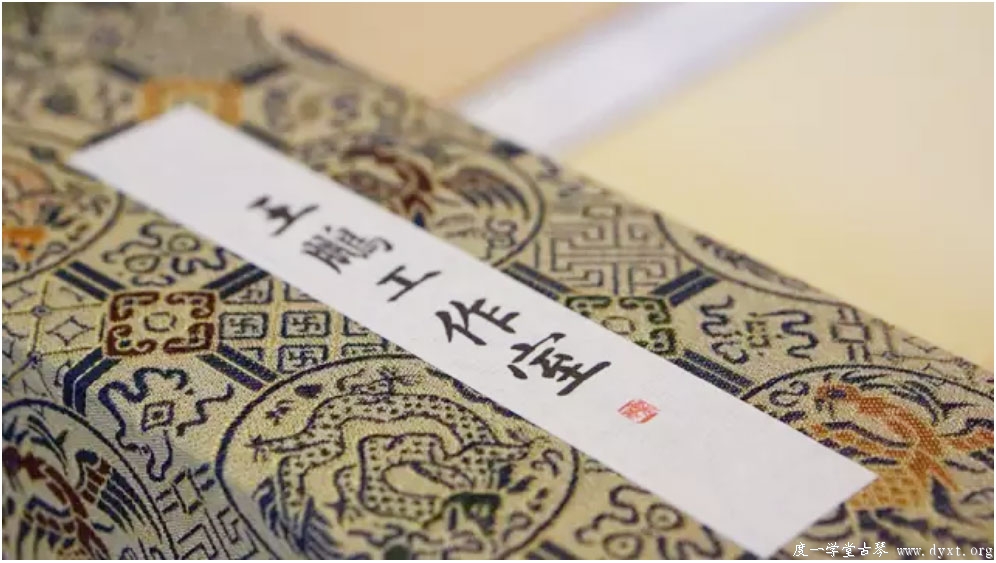 王鹏工作室
度一学堂古琴 www.dyxt.org